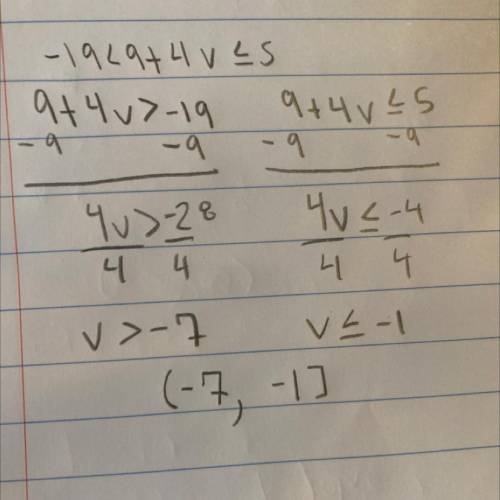 -19<9+4v≤5
9+4v>-19 9+4v≤5
-9 -9 -9 -9
4v>-28 4v≤-4
4 4 4 4
v>-7 v≤-1
(-7, -1]